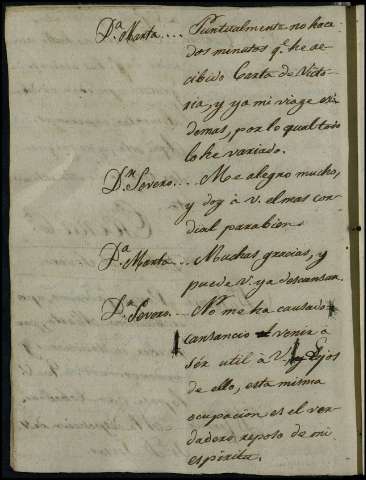 Dª Marta.... Puntualmente no hace
dos minutos q.e he re-
cibido Carta de Victo-
ria, y ya mi viage es de
mas, por lo qual todo
lo he variado.
Dn Severo... Me alegro mucho,
y doy à V. el mas cor-
dial parabien.
Dª Marta... Muchas gracias, y
puede V. ya descansar.
Dn Severo... No me ha causado
cansancio el venir à
sér util à V. Lejos
de ello, esta misma
ocupacion es el ver-
dadero reposo de mi
espiritu.